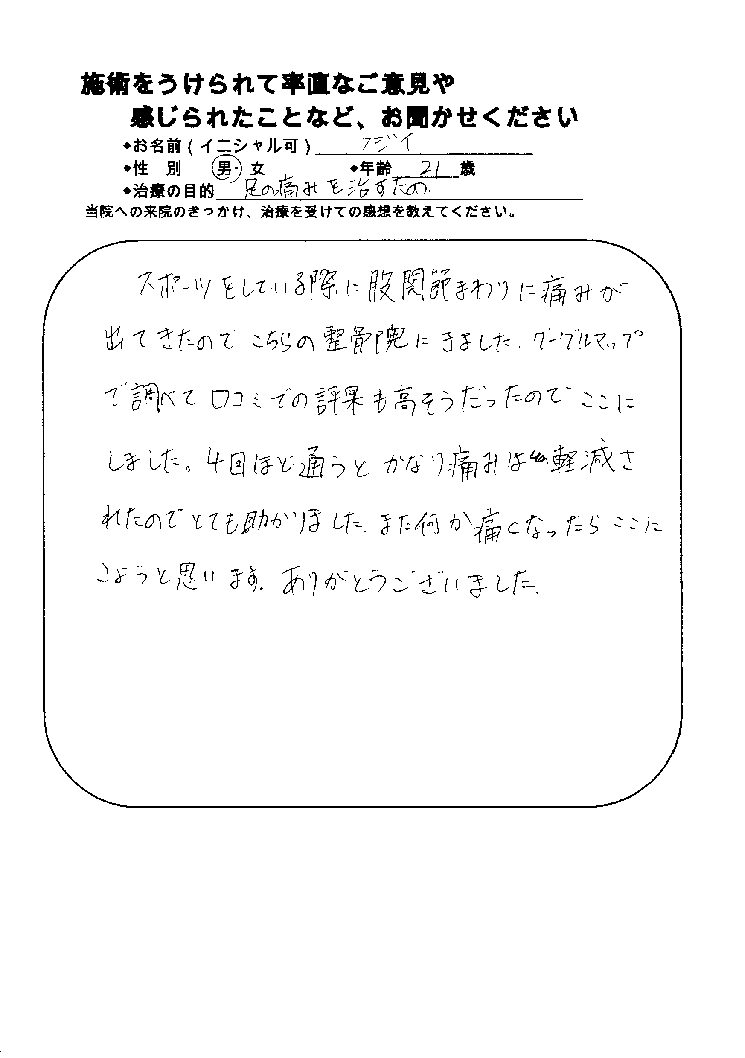 施術をうけられて率直なご意見や
感じられたことなど、お聞かせください
◆お名前(イニシャル可) フジイ
◆性 別 男・女 ◆年齢 21 歳
◆治療の目的 足の痛みを治すため
当院への来院のきっかけ、治療を受けての感想を教えてください。
スポーツをしている際に股関節まわりに痛みが
出てきたのでこちらの整骨院にきました。グーグルマップ
で調べて口コミでの評果も高そうだったのでここに
しました。4回ほど通うとかなり痛みは軽減さ
れたのでとても助かりました。また何か痛くなったらここに
きようと思います。ありがとうございました。